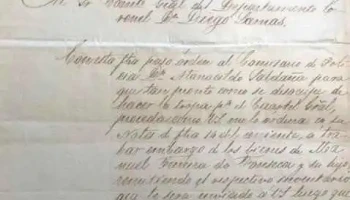 Al Sr. Gefe Gral del Departamento Co-
ronel Dn Diego Lamas.
Con esta fha paso orden al Comisario de Poli-
cia Dn Atanacildo Saldaña para
que tan pronto como se desocupe de
hacer la tropa pa el Cuartel Gral,
proceda como VS me lo ordena en su
Nota de fha 10 del corriente, a tra-
bar embargo de los bienes de Ma-
nuel Ferreira da Fonseca y su hijo
remitiendo el respectivo inventario
que le sera enviado a VS luego que